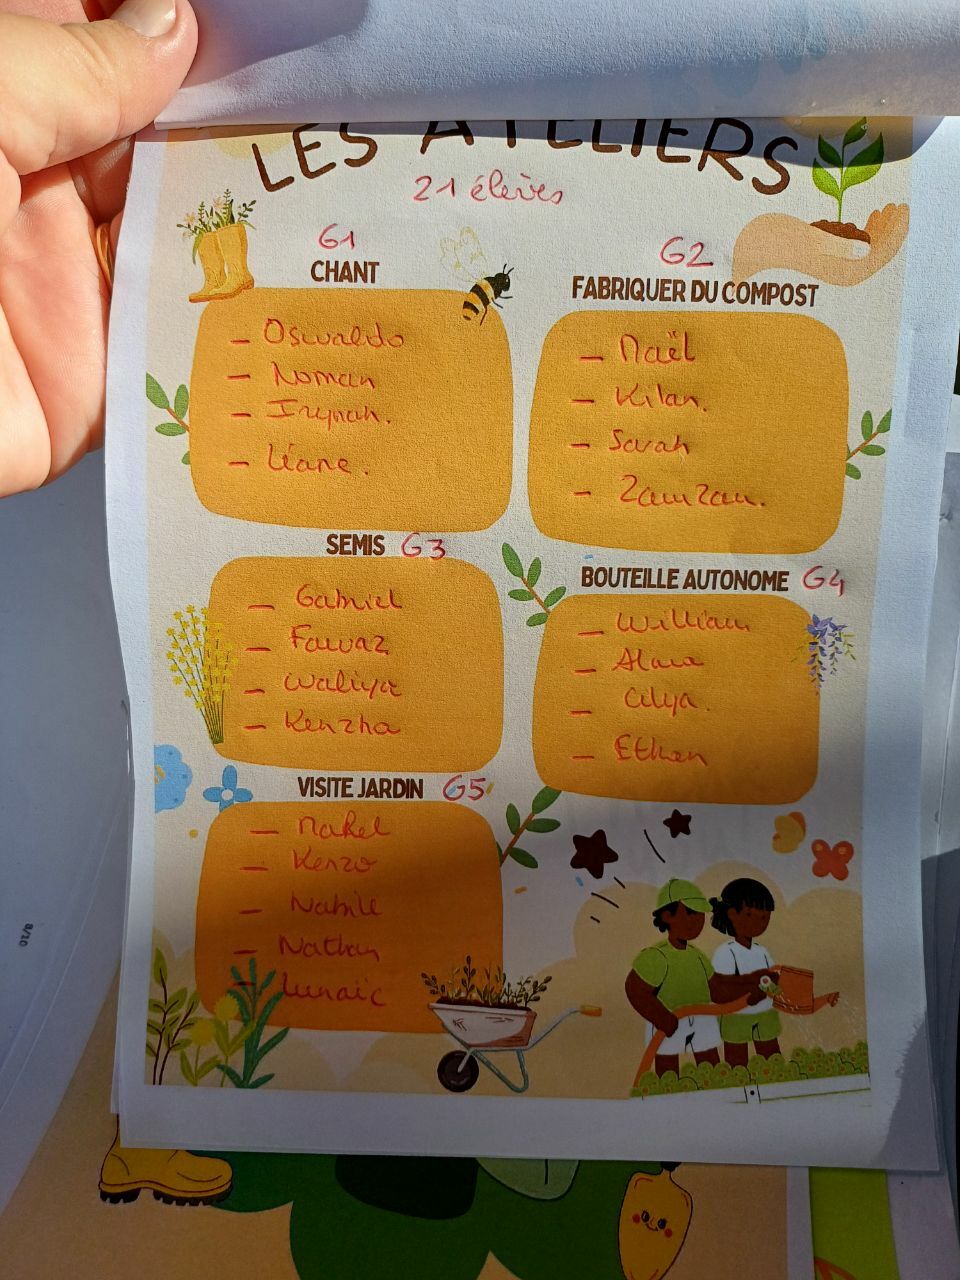 LES ATELIERS
21 élèves
G1
CHANT
- Oswaldo
- Noman
- Léane.
G2
FABRIQUER DU COMPOST
- Naël
- Kilan.
- Sarah
- Zamzam.
SEMIS G3
- Gabriel
- Fawaz
- Waliya
- Kenzha
BOUTEILLE AUTONOME G4
- William
- Alma
- Cilya.
- Ethan
VISITE JARDIN G5
- Kenzo
- Nahile
- Nathan
- Lunaïc
8/10